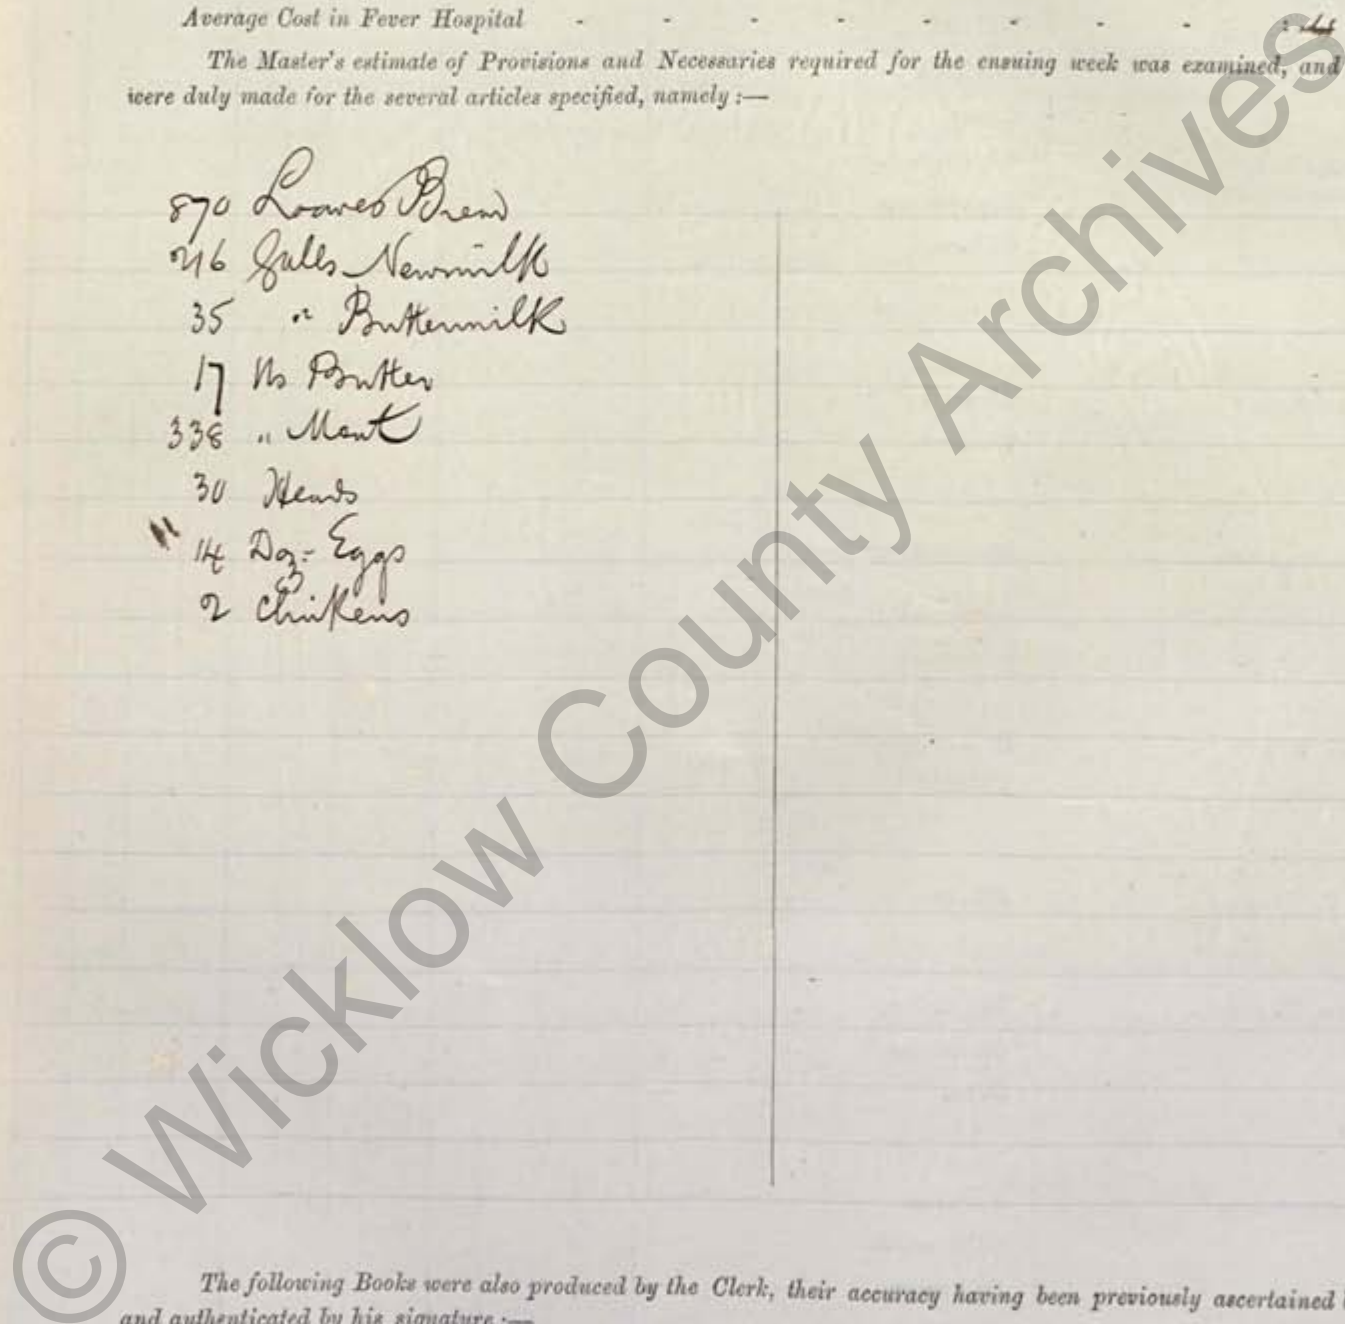 Average Cost in Fever Hospital - - - - - - - -
The Master's estimate of Provisions and Necessaries required for the ensuing week was examined, and
were duly made for the several articles specified, namely :—
870 Loaves Bread
216 Galls Newmilk
35 " Buttermilk
17 lbs Butter
338 " Meat
30 Heads
14 Doz- Eggs
2 Chickens
The following Books were also produced by the Clerk, their accuracy having been previously ascertained
and authenticated by his signature :—
© Wicklow County Archives